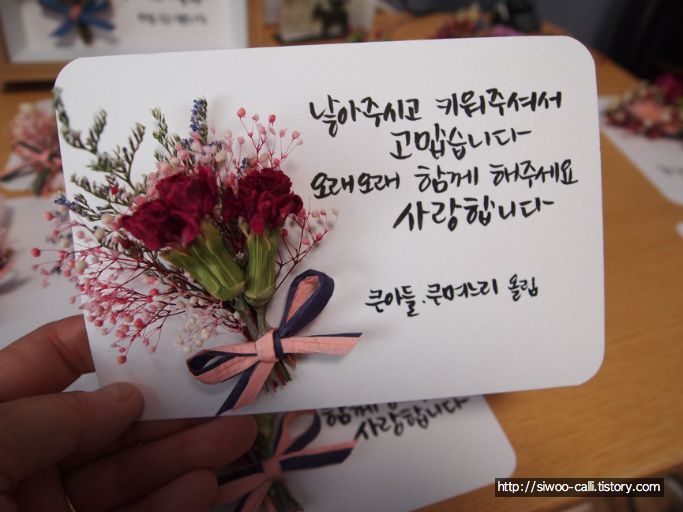 낳아주시고 키워주셔서
고맙습니다
오래오래 함께 해주세요
사랑합니다
큰아들.큰며느리 올림
함께
사랑합니다
http://siwoo-calli.tistory.com